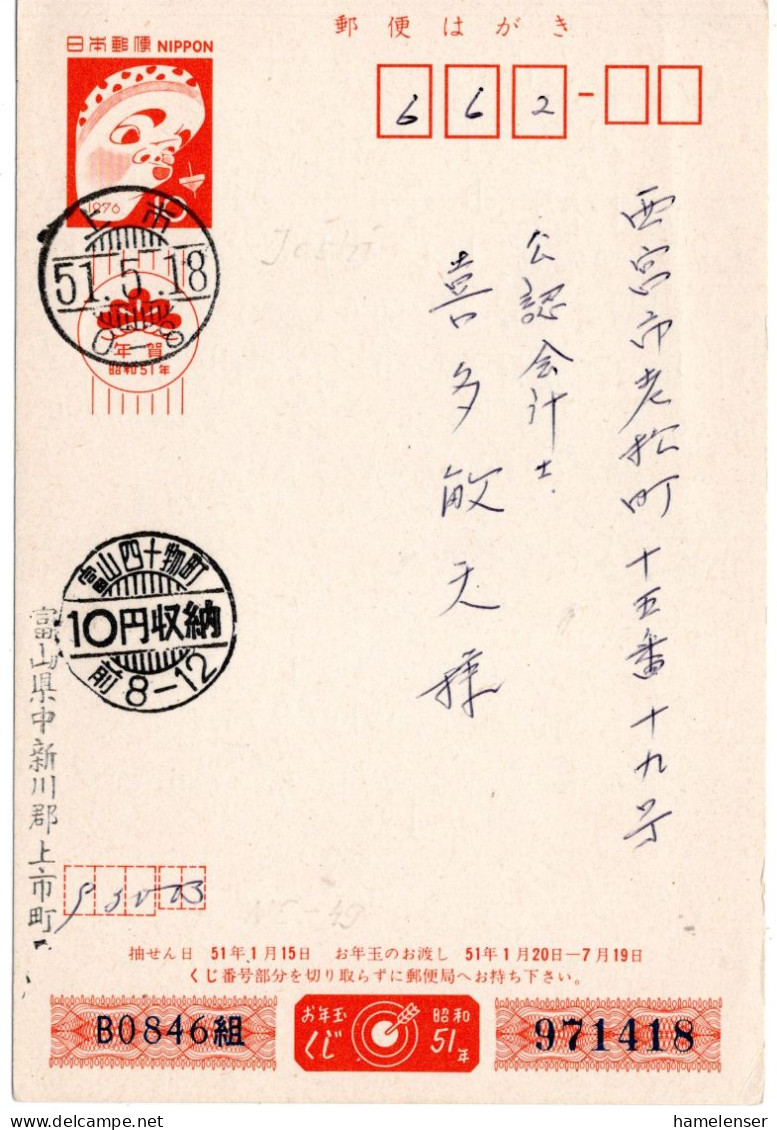 郵便はがき
日本郵便 NIPPON
1976
10
662
上市
51.5.18
0-8
年賀
昭和51年
西宮市老松町十五番十九号
公認会計士
喜多敏夫様
富山四十物町
10円収納
前8-12
富山県中新川郡上市町
930-03
抽せん日 51年1月15日 お年玉のお渡し 51年1月20日―7月19日
くじ番号部分を切り取らずに郵便局へお持ち下さい。
B0846組
お年玉くじ
昭和51年
971418
hamelenser